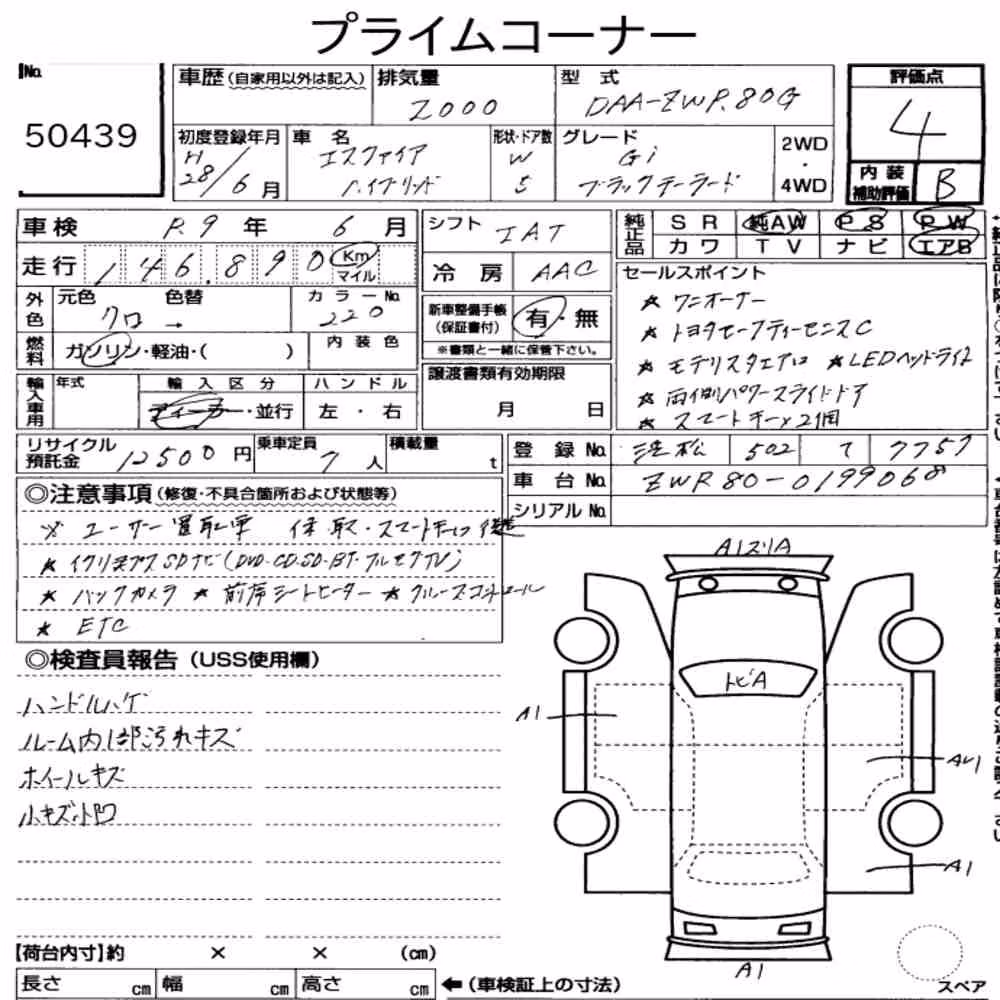 プライムコーナー
No. 50439
車歴(自家用以外は記入) 排気量 2000 型式 DAA-ZWR80G 評価点 4
初度登録年月 H28/6月 車名 エスクァイア ハイブリッド 形状・ドア数 W 5 グレード Gi ブラックテーラード 2WD・4WD 内装補助評価 B
車検 R.9年 6月 シフト IAT 純正品 SR 純AW PS PW
カワ TV ナビ エアB
走行 146.890 Km マイル 冷房 AAC セールスポイント
外色 元色 クロ 色替 → カラーNo. 220 新車整備手帳(保証書付) 有・無
※書類と一緒に保管下さい。
燃料 ガソリン・軽油・( ) 内装色
★ワンオーナー
★トヨタセーフティーセンスC
★モデリスタエアロ ★LEDヘッドライト
★両側パワースライドドア
★スマートキー×2個
輸入車用 年式 輸入区分 ディーラー・並行 ハンドル 左・右 譲渡書類有効期限 月 日
リサイクル預託金 12500円 乗車定員 7人 積載量 t
登録No. 浜松 502 て 7757
車台No. ZWR80-0199068
シリアルNo.
◎注意事項(修復・不具合箇所および状態等)
※ユーザー買取車 保・取・スマートキー1ケ後送
★イクリプスSDナビ(DVD・CD・SD・BT・フルセグTV)
★バックカメラ ★前席シートヒーター ★クルーズコントロール
★ETC
◎検査員報告(USS使用欄)
ハンドルハゲ
ルーム内1部汚れキズ
ホイールキズ
小キズ小凹
A1スリA
トビA
A1
AU1
A1
A1
スペア
【荷台内寸】約 × × (cm)
長さ cm 幅 cm 高さ cm ←(車検証上の寸法)